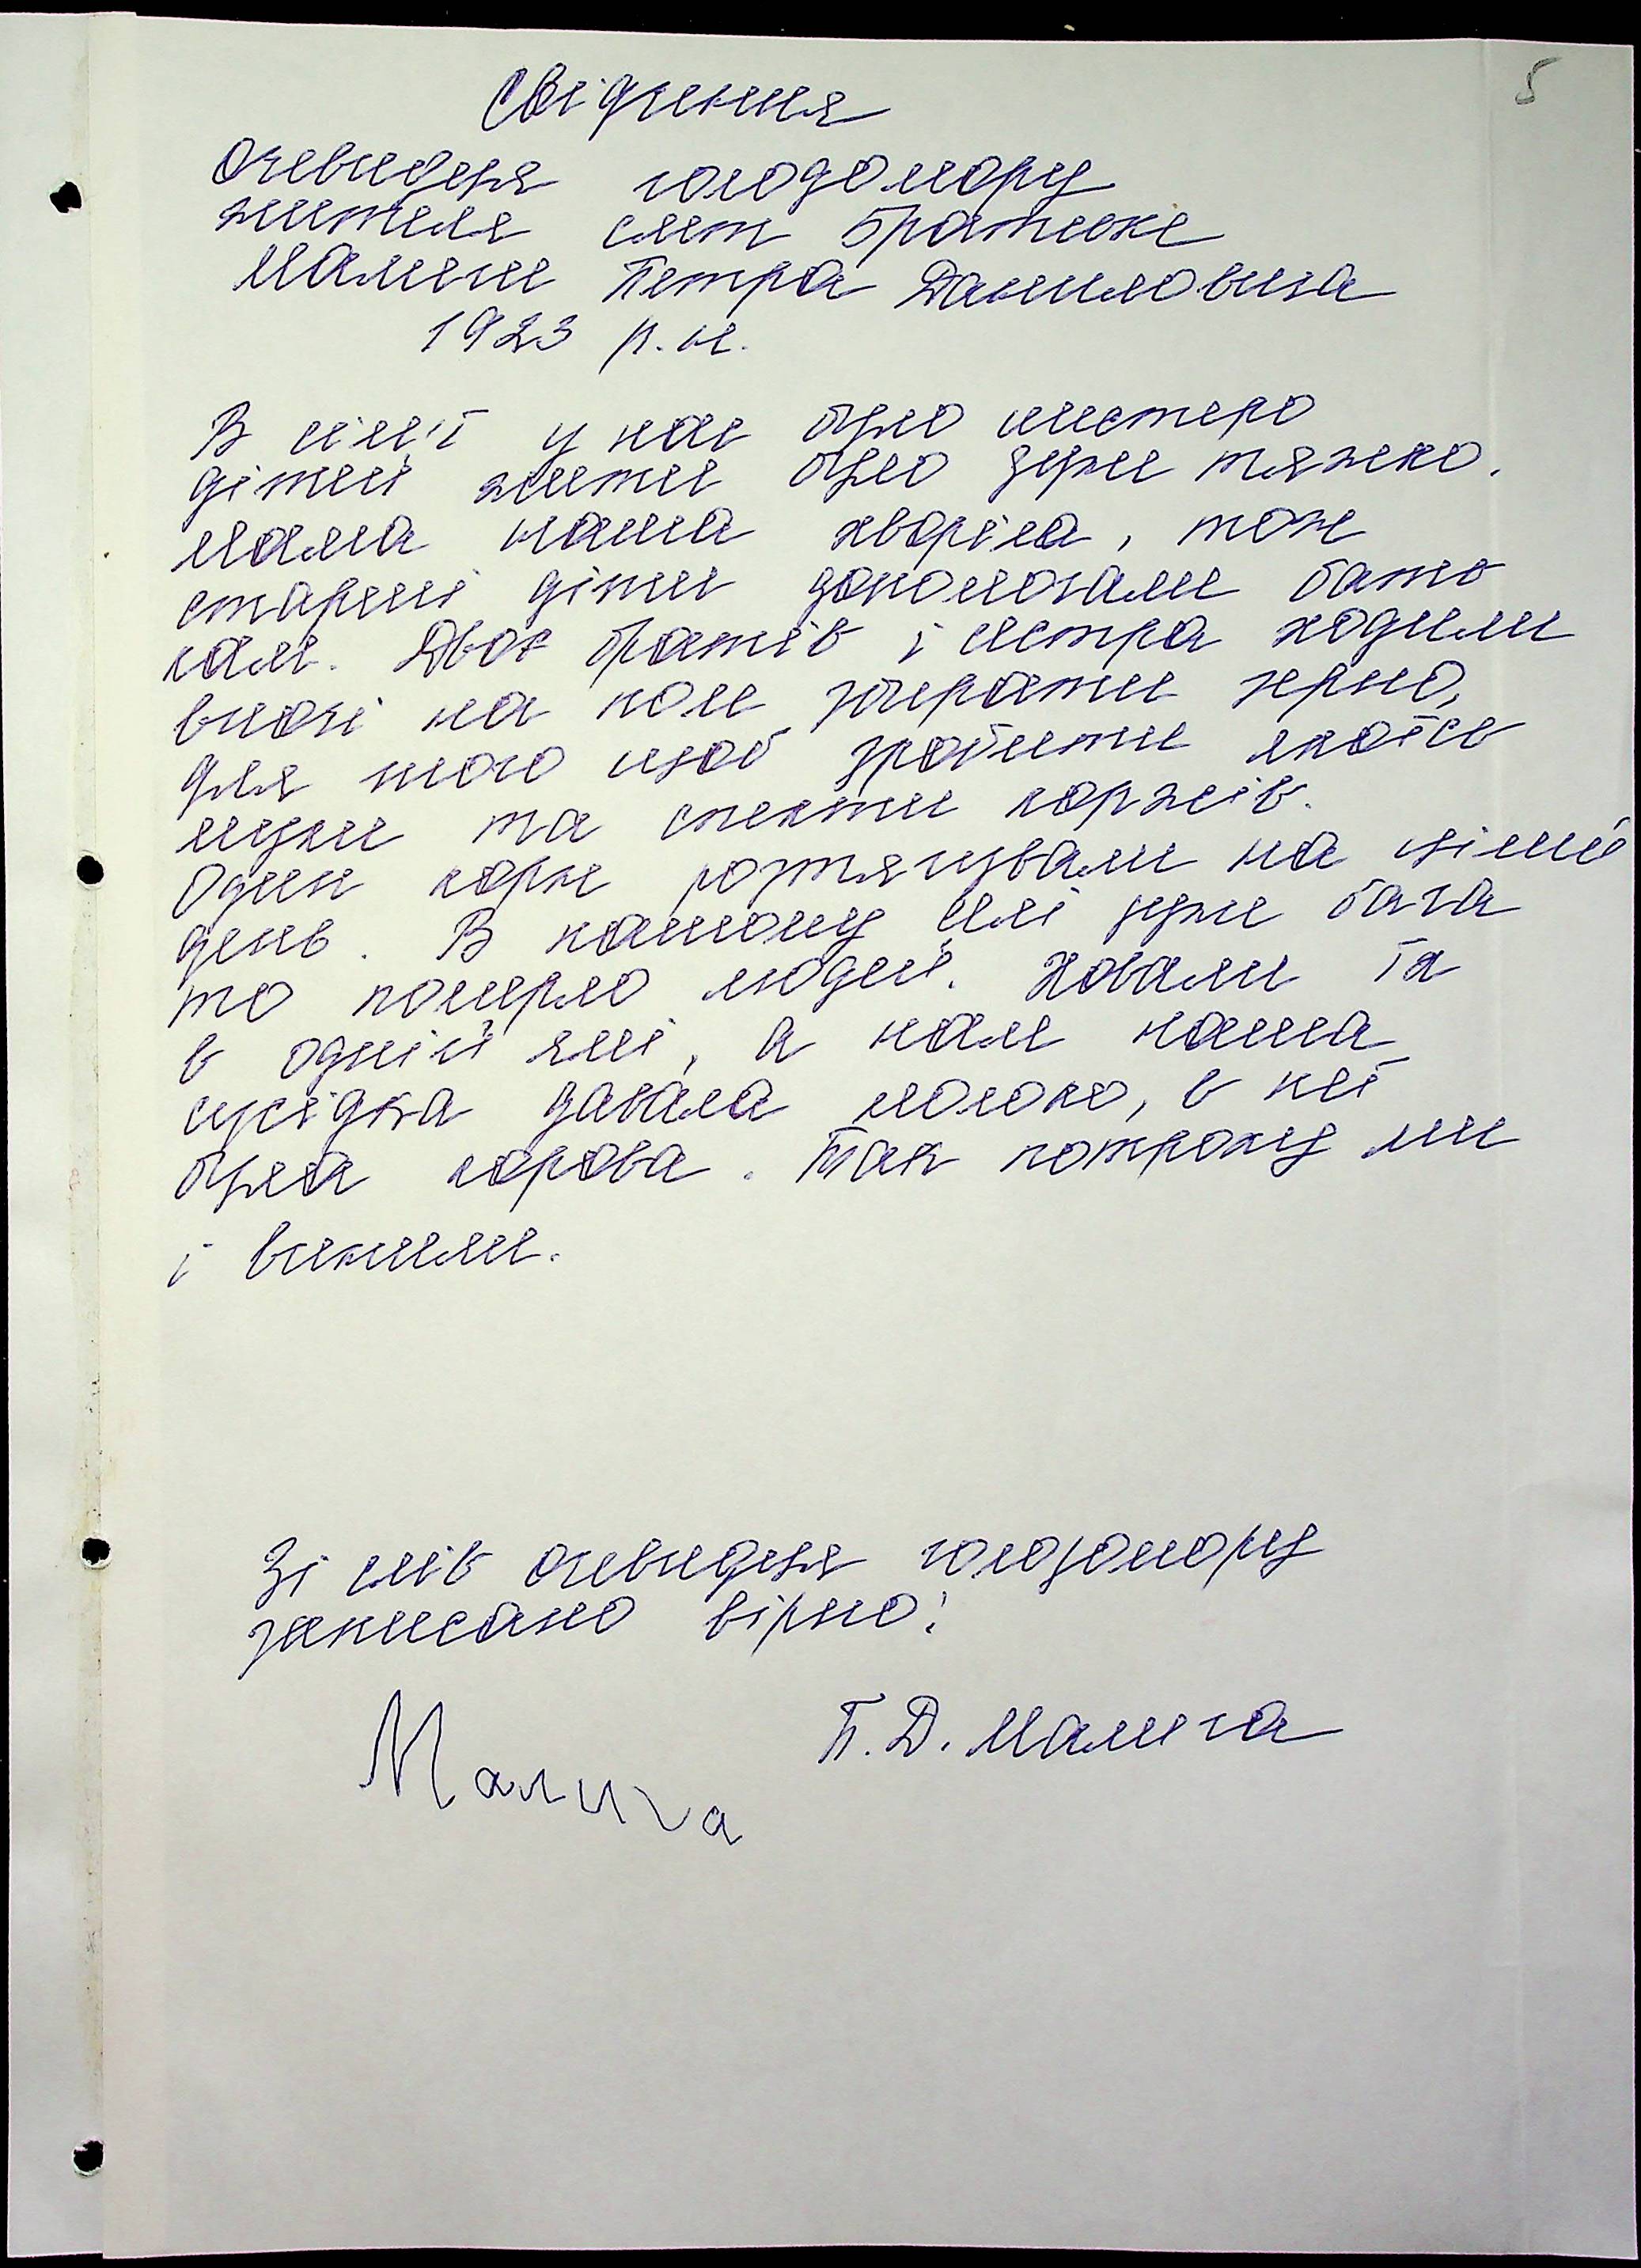 5
Свідчення
очевидця голодомору
жителя смт Братське
Малиги Петра Даниловича
1923 р.н.
В сім'ї у нас було шестеро
дітей жити було дуже тяжко.
Мама наша хворіла, тож
старші діти допомогали бать
кам. Двоє братів і сестра ходили
вночі на поле збирати зерно,
для того щоб зробити якоїсь
муки та спекти коржів.
Один корж розтягували на цілий
день. В нашому селі дуже бага
то померло людей. Ховали їх
в одній ямі, а нам наша
сусідка давала молоко, в неї
була корова. Так потроху ми
і вижили.
Зі слів очевидця голодомору
записано вірно:
П.Д. Малига
Малига